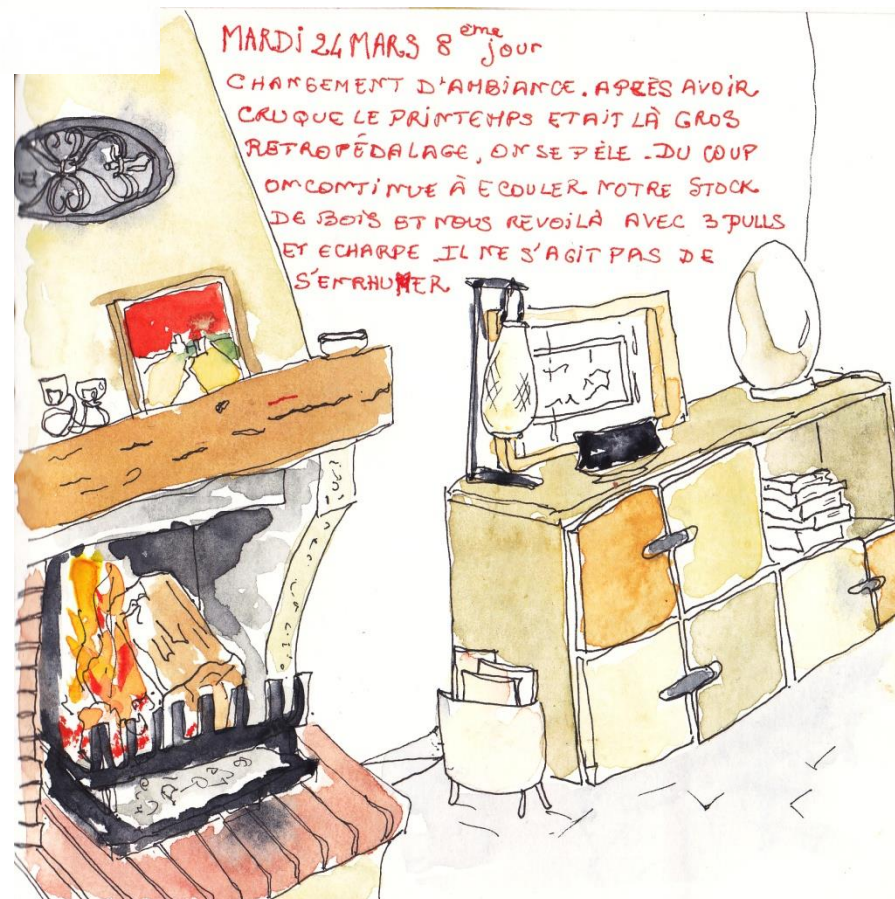 MARDI 24 MARS 8ème jour
CHANGEMENT D'AMBIANCE. APRÈS AVOIR
CRU QUE LE PRINTEMPS ETAIT LÀ GROS
RETROPÉDALAGE, ON SE PÈLE. DU COUP
ON CONTINUE À ECOULER NOTRE STOCK
DE BOIS ET NOUS REVOILÀ AVEC 3 PULLS
ET ECHARPE. IL NE S'AGIT PAS DE
S'ENRHUMER